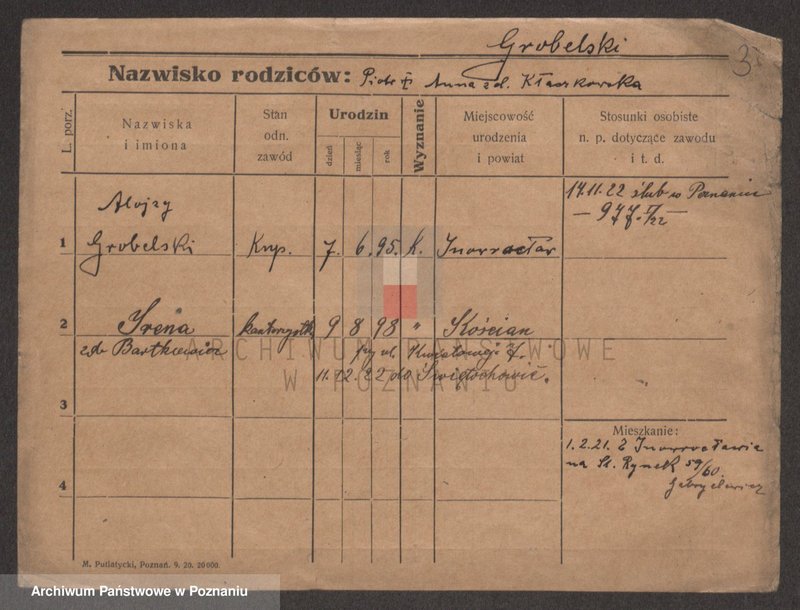 Grobelski
3
Nazwisko rodziców: Piotr Anna zd. Kłaczkowska
L. porz.
Nazwiska i imiona
Stan odn. zawód
Urodzin
dzień
miesiąc
rok
Wyznanie
Miejscowość urodzenia i powiat
Stosunki osobiste n. p. dotyczące zawodu i t. d.
17.11.22 ślub w Poznaniu
— 977. /22 —
Alojzy
1 Grobelski Kup. 7. 6. 95. k. Inowrocław
2 Irena 9 8 98 " Kościan
zd. Bartkiewicz
11.12.22 do Świętochowic.
3
Mieszkanie:
1.2.21. z Inowrocławia
na St. Rynek 59/60.
Gabryelewicz
4
M. Putiatycki, Poznań. 9. 20. 20 000.
ARCHIWUM PAŃSTWOWE
W POZNANIU
Archiwum Państwowe w Poznaniu